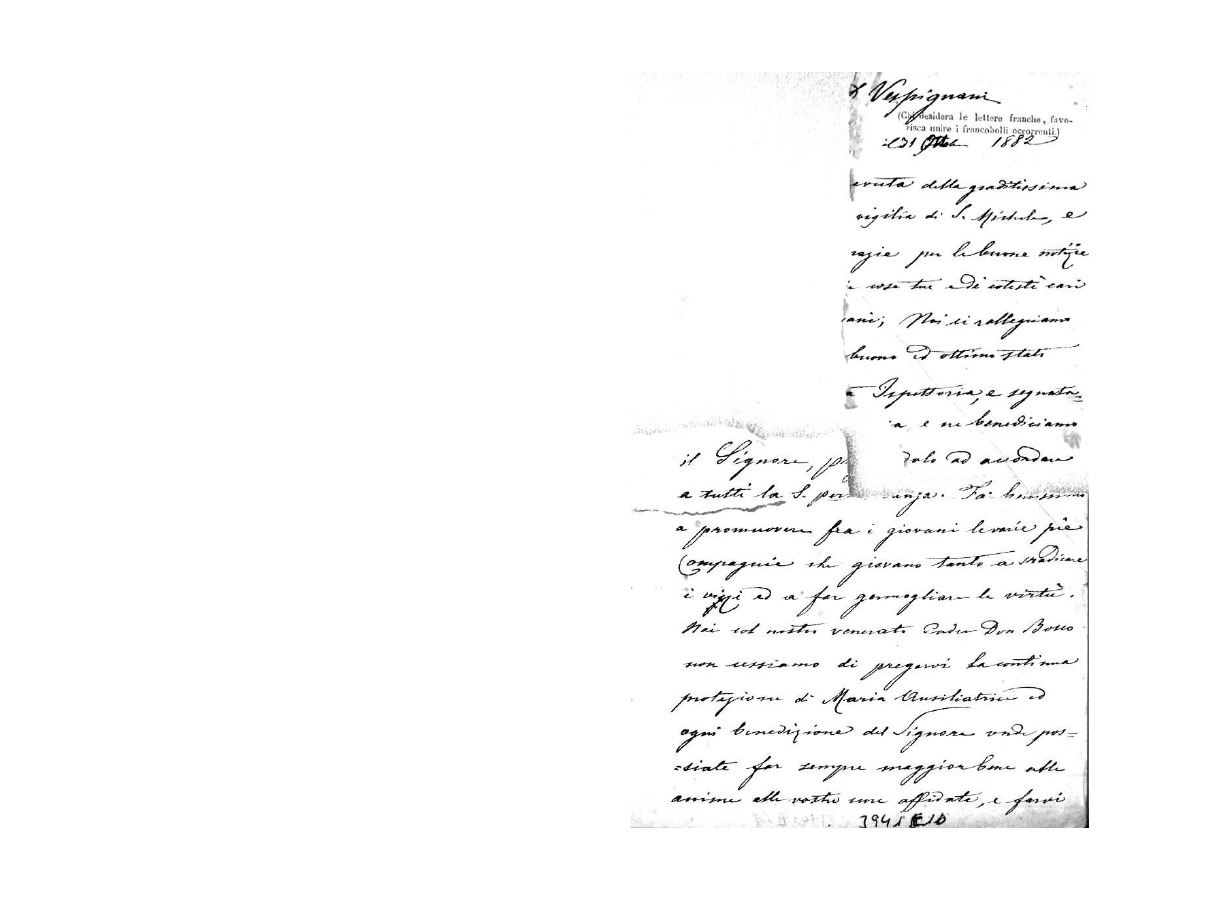 Vespignani
(Chi desidera le lettere franche, favo-
risca unire i francobolli occorrenti.)
il 31 1882
evuta della graditissima
vigilia di S. Michele, e
razie per le buone notizie
cose tue e di cotesti cari
ani; Noi ci rallegriamo
buono ed ottimo stato
a Ispettoria, e segnata=
a, e ne benediciamo
il Signore, dolo ad accordare
a tutti la S. per anza. Fa benissimo
a promuovere fra i giovani le varie pie
Compagnie che giovano tanto a sradicare
i vizi ed a far germogliare le virtù.
Noi col nostro venerato Padre Don Bosco
non cessiamo di pregarvi la continua
protezione di Maria Ausiliatrice ed
ogni benedizione del Signore onde pos=
=siate far sempre maggior bene alle
anime alle vostre cure affidate, e farvi
3941 E10